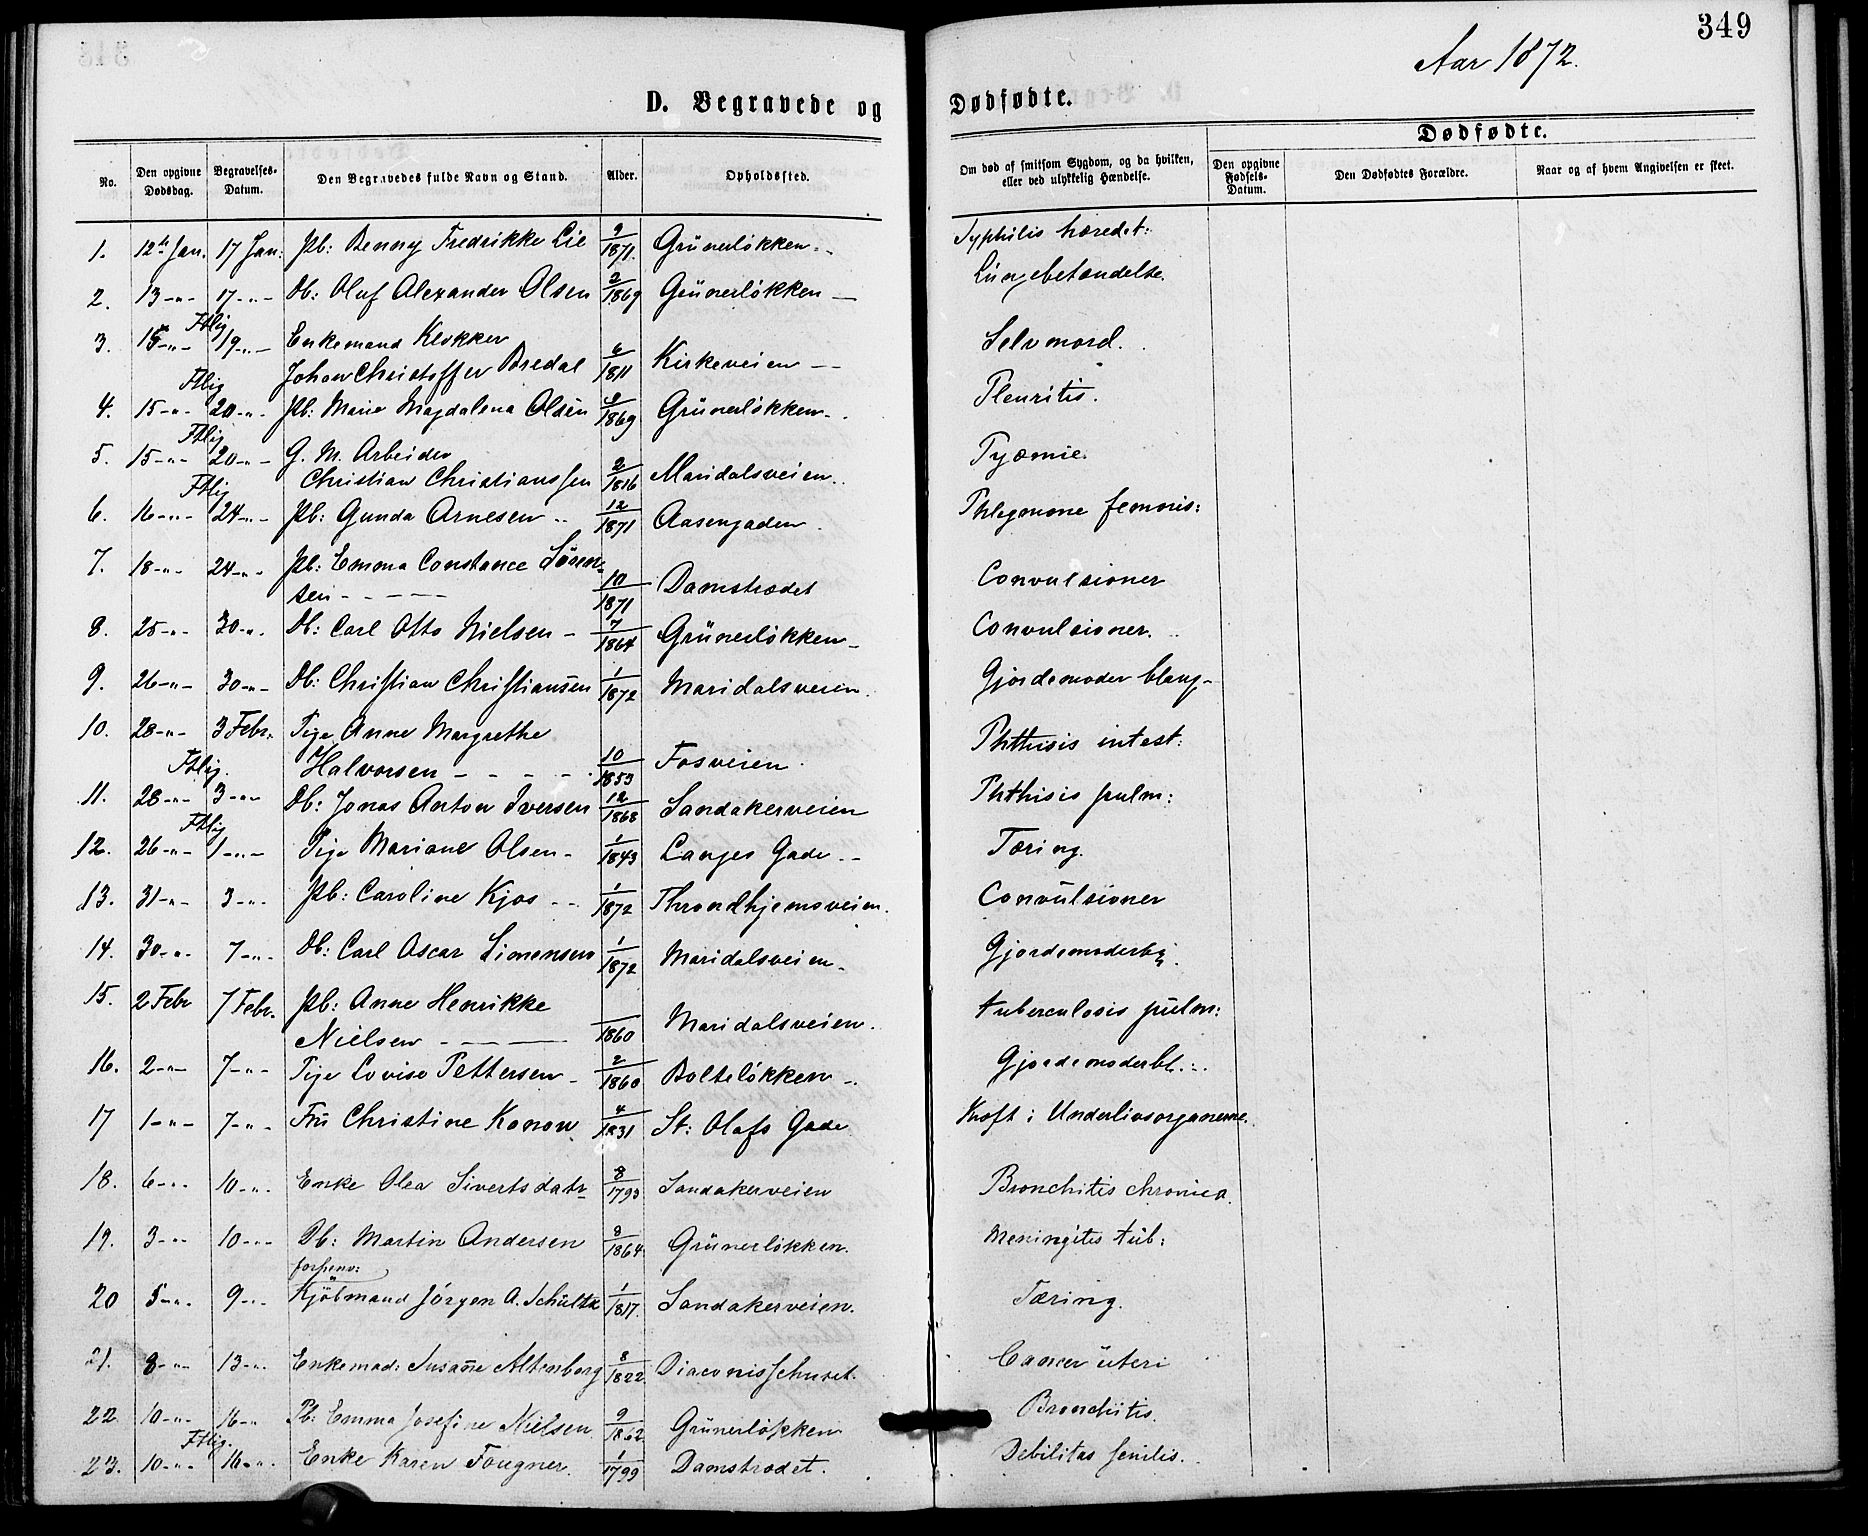 349
Aar 1872.
D. Begravede og Dødfødte.
Dødfødte.
No. Den opgivne Dødsdag. Begravelses-Datum. Den Begravedes fulde Navn og Stand. Alder. Opholdssted. Om død af smitsom Sygdom, og da hvilken, eller ved ulykkelig Hændelse. Den opgivne Fødsels-Datum. Den Dødfødtes Forældre. Naar og af hvem Angivelsen er skeet.
1. 12te Jan. 17 Jan. Pb: Benny Fredrikke Lie 9/1871. Grünerløkken.. Syphilis hæredet:
2. 13-"- 17-"- Db: Oluf Alexander Olsen 2/1869 Grünerløkken — Lungebetændelse.
Ftlig
3. 15-"- 19-"- Enkemand Klokker
Johan Christoffer Bredal 6/1811 Kirkeveien -- Selvmord.
Ftlig
4. 15-"- 20-"- Pb: Marie Magdalena Olsen /1869 Grünerløkken-. Pleuritis.
Ftlig
5. 15-"- 20-"- G. M. Arbeider
Christian Christianssen 2/1816 Maridalsveien.. Pyæmie.
Ftlig
6. 16-"- 24-"- Pb: Gunda Arnesen .. 12/1871 Aasengaden. Phlegmone femoris:
7. 18-"- 24-"- Pb: Emma Constance Sören-
sen ----- 10/1871 Damstrædet Convulsioner
8. 25-"- 30-". Db: Carl Otto Nielsen - 7/1864 Grünerløkken- Convulsioner.
9. 26-"- 30-"- Db: Christian Christiansen 1/1872 Maridalsveien. Gjordemoder blang-
10. 28-"- 3 Febr. Pige Anne Margrethe
Halvorsen - - - - 10/1853 Fosveien. Phthisis intest:
Ftlig.
11. 28-"- 3-"- Db: Jonas Anton Iversen 12/1868 Sandakerveien Phthisis pulm:
Ftlig
12. 26-"- 1-"- Pige Mariane Olsen- 1/1843 Langes Gade.- Tæring.
13. 31-"- 3-". Pb: Caroline Kjos -- 1/1872 Throndhjemsveien. Convulsioner
14. 30-"- 7-"- Db: Carl Oscar Simensen 1/1872 Maridalsveien- Gjordemoderbg.
15. 2 Febr 7 Febr. Pb: Anne Henrikke
Nielsen ---- /1860 Maridalsveien. tuberculosis pulm:
16. 2-"- 7-"- Pige Lovise Pettersen- 2/1860 Bolteløkken-. Gjordemoderbl.:.
17 1-"- 7-"- Fru Christine Konow 4/1831 St: Olafs Gade Kræft i Underlivsorganerne.
18. 6-". 10-". Enke Olea Sivertsdatr 8/1793 Sandakerveien Bronchitis chronica.
19. 3-"- 10-"- Db: Martin Andersen 8/1864 Grünerløkken. Meningitis tub:
forhenv:
20 5-". 9-"- Kjöbmand Jörgen A. Schultz 1/1817. Sandakerveien. Tæring.
21. 8-"- 13-". Enkemad: Susane Altenborg 8/1822 Diaconissehuset. Cancer uteri
22. 10-"- 16-" Pb: Emma Josefine Nielsen 9/1862 Grünerløkken Bronchitis.
Ftlig.
23. 10-"- 16-". Enke Karen Fougner. 1/1799 Damstrædet. Debilitas senilis.